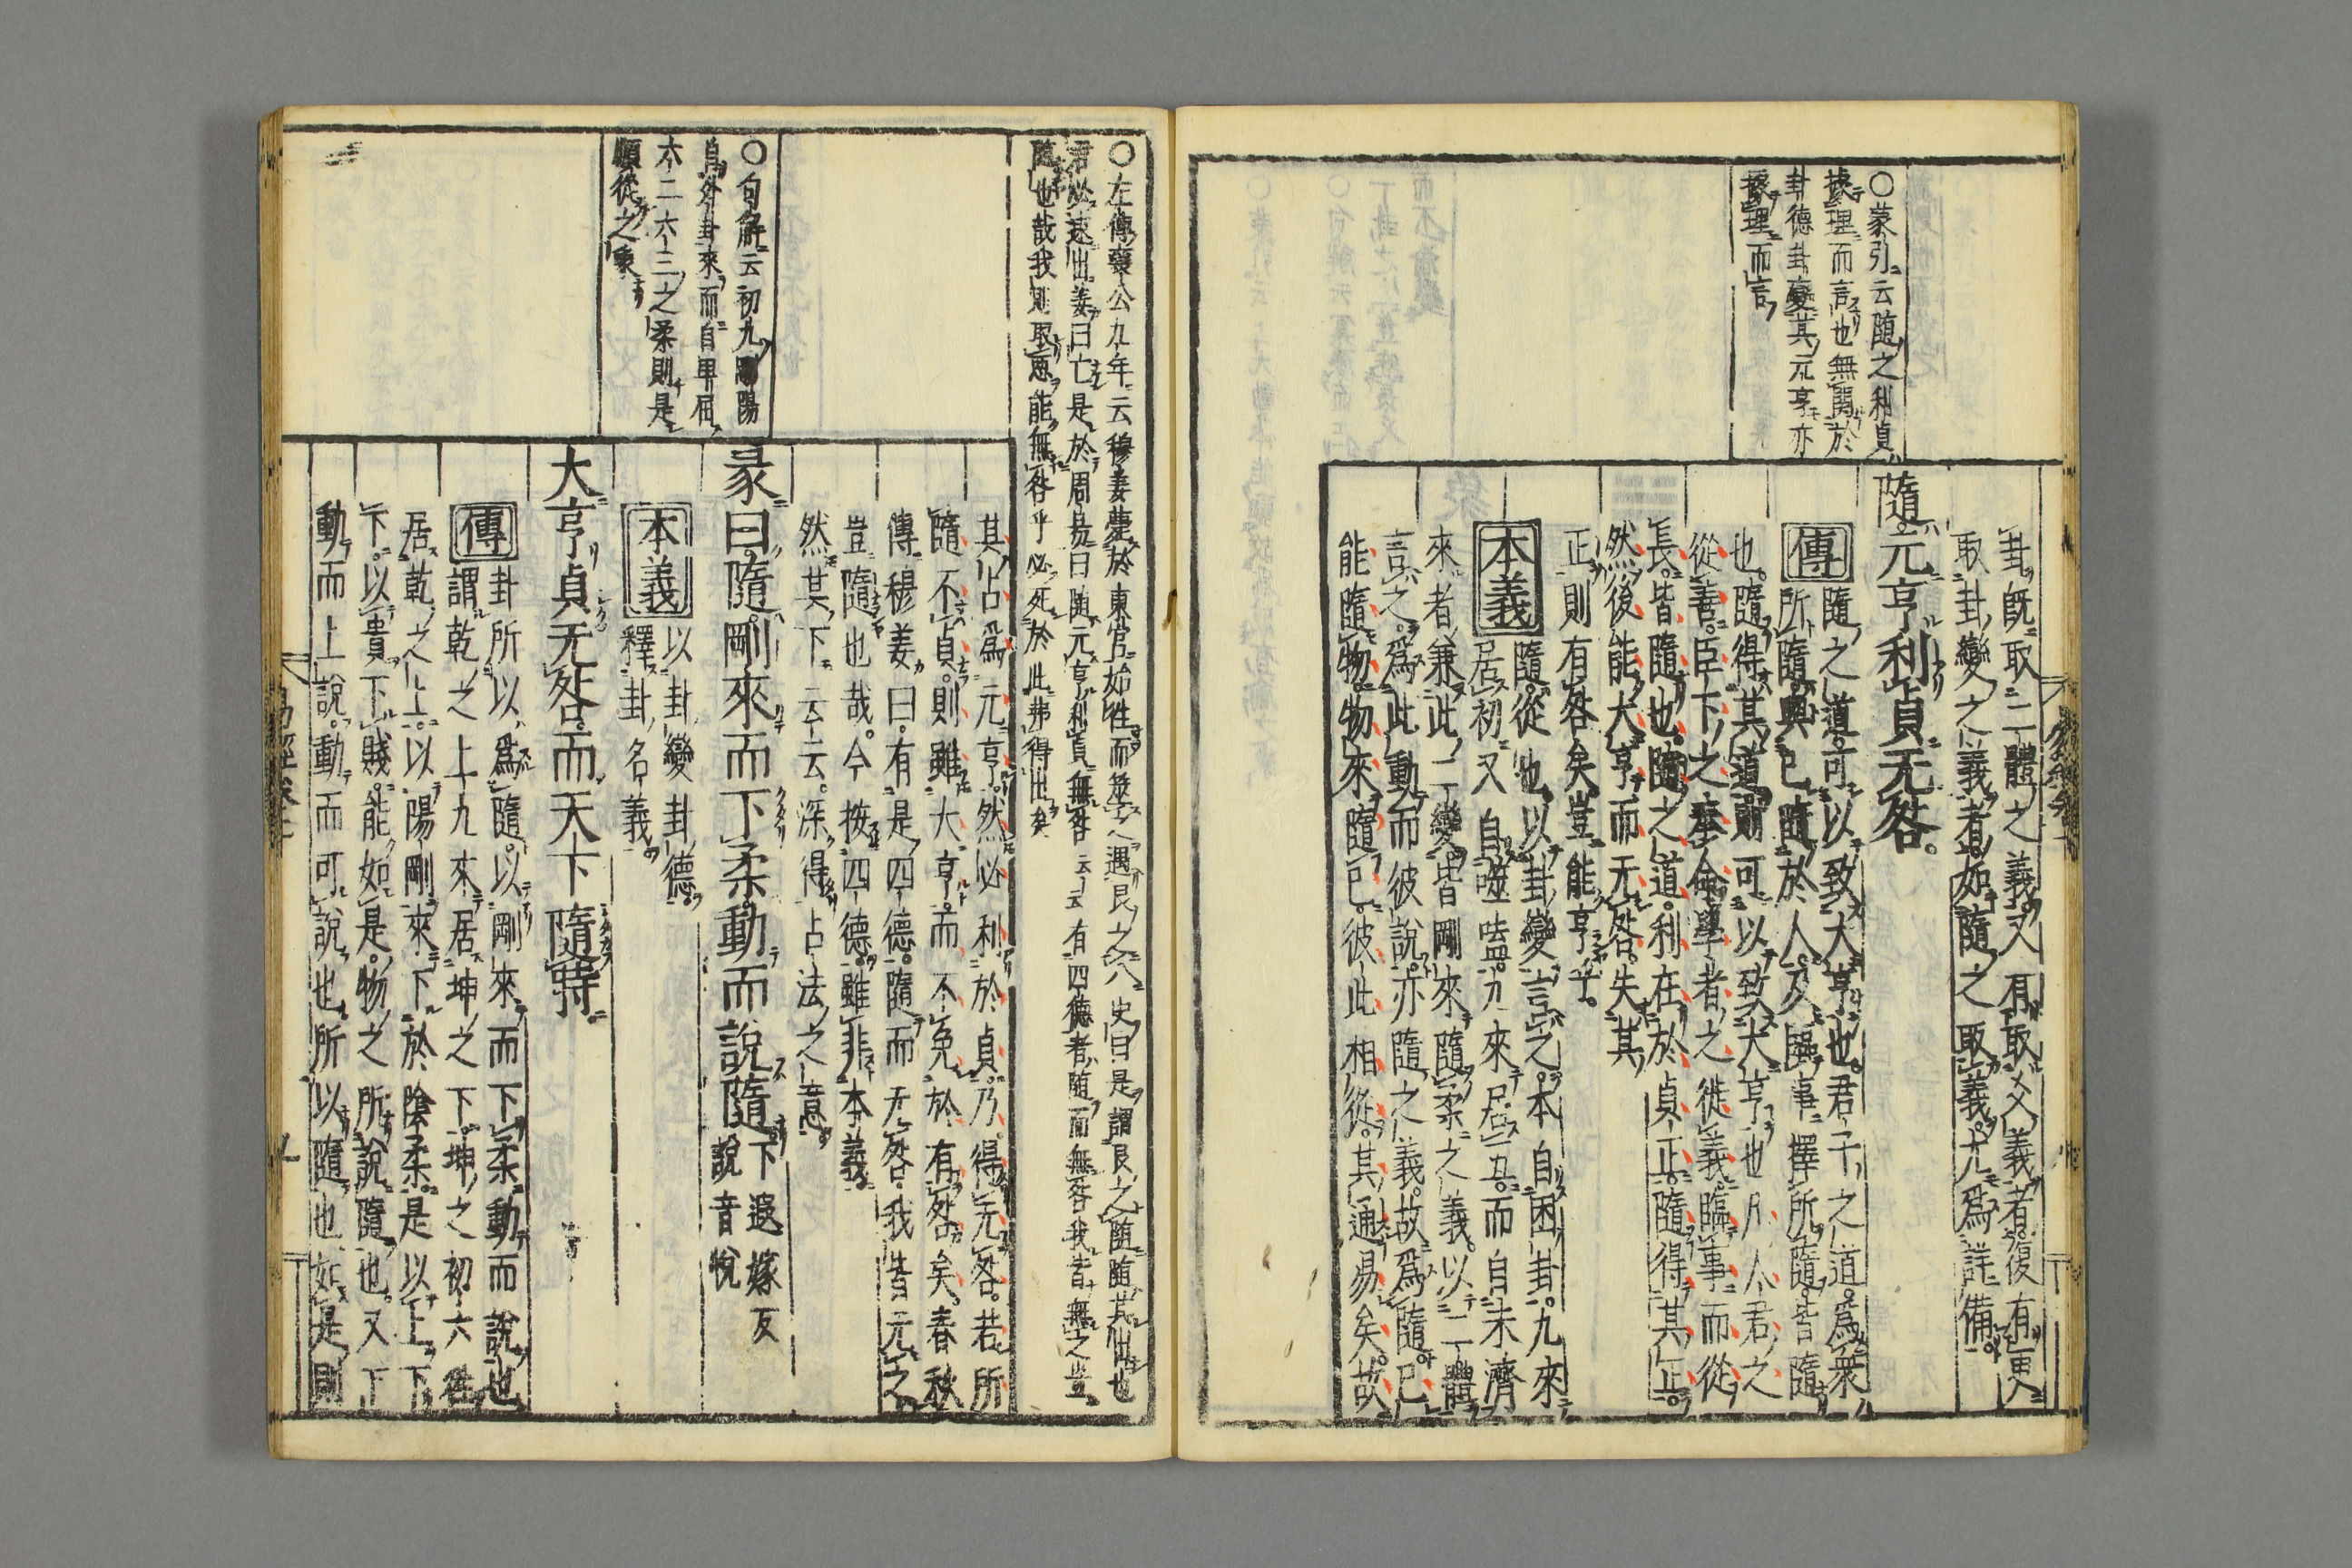 ○蒙引云随之利貞
據理而言也無關於
卦德卦變其元亨亦
據理而言
卦既取二體之義又有取爻義者復有更
取卦變之義者如隨之取義尤爲詳備
隨元亨利貞无咎
傳隨之道可以致大亨也君子之道爲衆
所隨與己隨於人及臨事擇所隨皆隨
也隨得其道則可以致大亨也凡人君之
從善臣下之奉命學者之徙義臨事而從
長皆隨也隨之道利在於貞正隨得其正
然後能大亨而无咎失其
正則有咎矣豈能亨乎
本義隨從也以卦變言之本自困卦九來
居初又自噬嗑九來居五而自未濟
來者兼此二變皆剛來隨柔之義以二體
言之爲此動而彼說亦隨之義故爲隨己
能隨物物來隨己彼此相從其通易矣故
○左傳襄公九年云穆姜薨於東宮始往而筮之遇艮之八史曰是謂艮之随随其出也
君必速出姜曰亡是於周易曰随元亨利貞無咎云云有四德者随而無咎我皆無之豈
随也哉我則取惡能無咎乎必死於此弗得出矣
○句解云初九剛陽
自外卦來而自卑屈
六二六三之柔則是
順從之象
其占爲元亨然必利於貞乃得无咎若所
隨不貞則雖大亨而不免於有咎矣春秋
傳穆姜曰有是四德隨而无咎我皆无之
豈隨也哉今按四德雖非本義
然其下云云深得占法之意
彖曰隨剛來而下柔動而說隨下遐嫁反
說音悅
本義以卦變卦德
釋卦名義
大亨貞无咎而天下隨時
傳卦所以爲隨以剛來而下柔動而說也
謂乾之上九來居坤之下坤之初六往
居乾之上以陽剛來下於陰柔是以上下
下以貴下賤能如是物之所說隨也又下
動而上說動而可說也所以隨也如是則